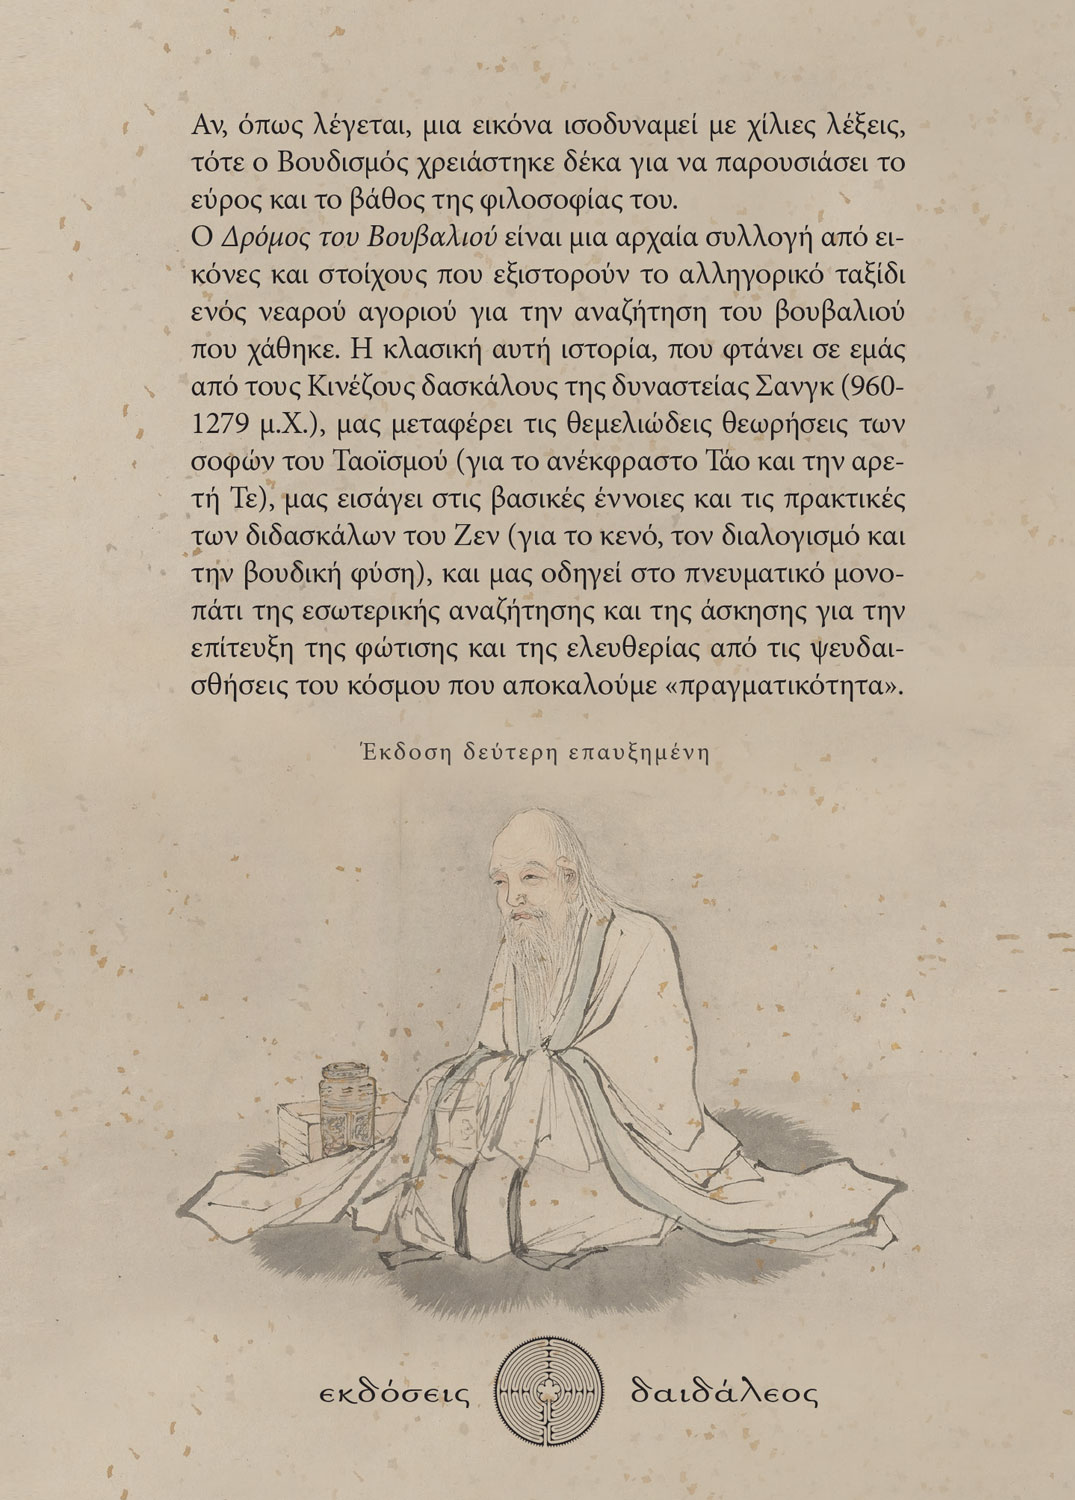 Αν, όπως λέγεται, μια εικόνα ισοδυναμεί με χίλιες λέξεις,
τότε ο Βουδισμός χρειάστηκε δέκα για να παρουσιάσει το
εύρος και το βάθος της φιλοσοφίας του.
Ο Δρόμος του Βουβαλιού είναι μια αρχαία συλλογή από ει-
κόνες και στοίχους που εξιστορούν το αλληγορικό ταξίδι
ενός νεαρού αγοριού για την αναζήτηση του βουβαλιού
που χάθηκε. Η κλασική αυτή ιστορία, που φτάνει σε εμάς
από τους Κινέζους δασκάλους της δυναστείας Σανγκ (960-
1279 μ.Χ.), μας μεταφέρει τις θεμελιώδεις θεωρήσεις των
σοφών του Ταοϊσμού (για το ανέκφραστο Τάο και την αρε-
τή Τε), μας εισάγει στις βασικές έννοιες και τις πρακτικές
των διδασκάλων του Ζεν (για το κενό, τον διαλογισμό και
την βουδική φύση), και μας οδηγεί στο πνευματικό μονο-
πάτι της εσωτερικής αναζήτησης και της άσκησης για την
επίτευξη της φώτισης και της ελευθερίας από τις ψευδαι-
σθήσεις του κόσμου που αποκαλούμε «πραγματικότητα».
Έκδοση δεύτερη επαυξημένη
εκδόσεις δαιδάλεος